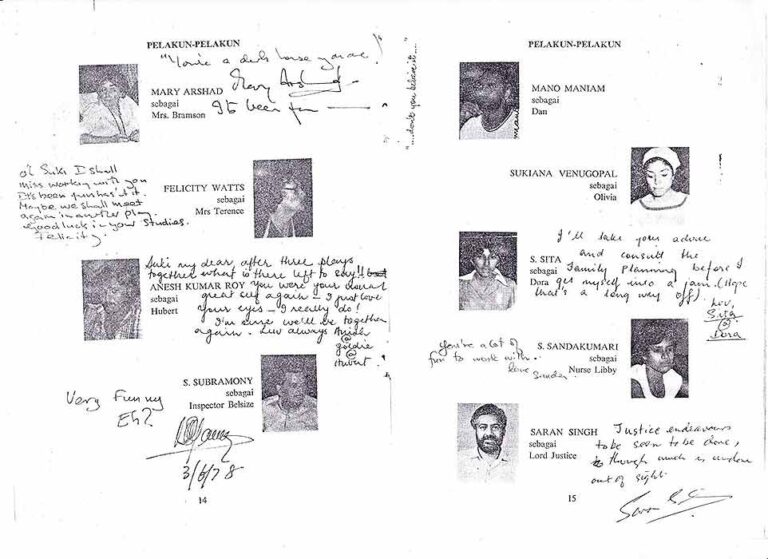 PELAKUN-PELAKUN
"You're a
MARY ARSHAD
sebagai
Mrs. Bramson
Mary Arshad
It's been fun
Oi Suki I shall
miss working with you
It's been fun hasn't it.
Maybe we shall meet
again in another play.
Good luck in your studies.
Felicity.
FELICITY WATTS
sebagai
Mrs Terence
Suki my dear, after three plays
together what is there left to say!!
ANESH KUMAR ROY
sebagai
Hubert
You were your usual
great self again – I just love
your eyes – I really do!
I'm sure we'll be together
again. Luv always Anesh
@
goldie
@
Hubert.
Very Funny
Eh?
S. SUBRAMONY
sebagai
Inspector Belsize
3/6/78
14
"...don't you believe it..."
PELAKUN-PELAKUN
MANO MANIAM
sebagai
Dan
mano
SUKIANA VENUGOPAL
sebagai
Olivia
S. SITA
sebagai
Dora
I'll take your advice
and consult the
Family Planning before I
get myself into a jam. (Hope
that's a long way off).
Luv,
Sita
@
Dora
You're a lot of
fun to work with.
love
S. SANDAKUMARI
sebagai
Nurse Libby
SARAN SINGH
sebagai
Lord Justice
Justice endeavours
to be seen to be done,
though much is undone
out of sight.
15